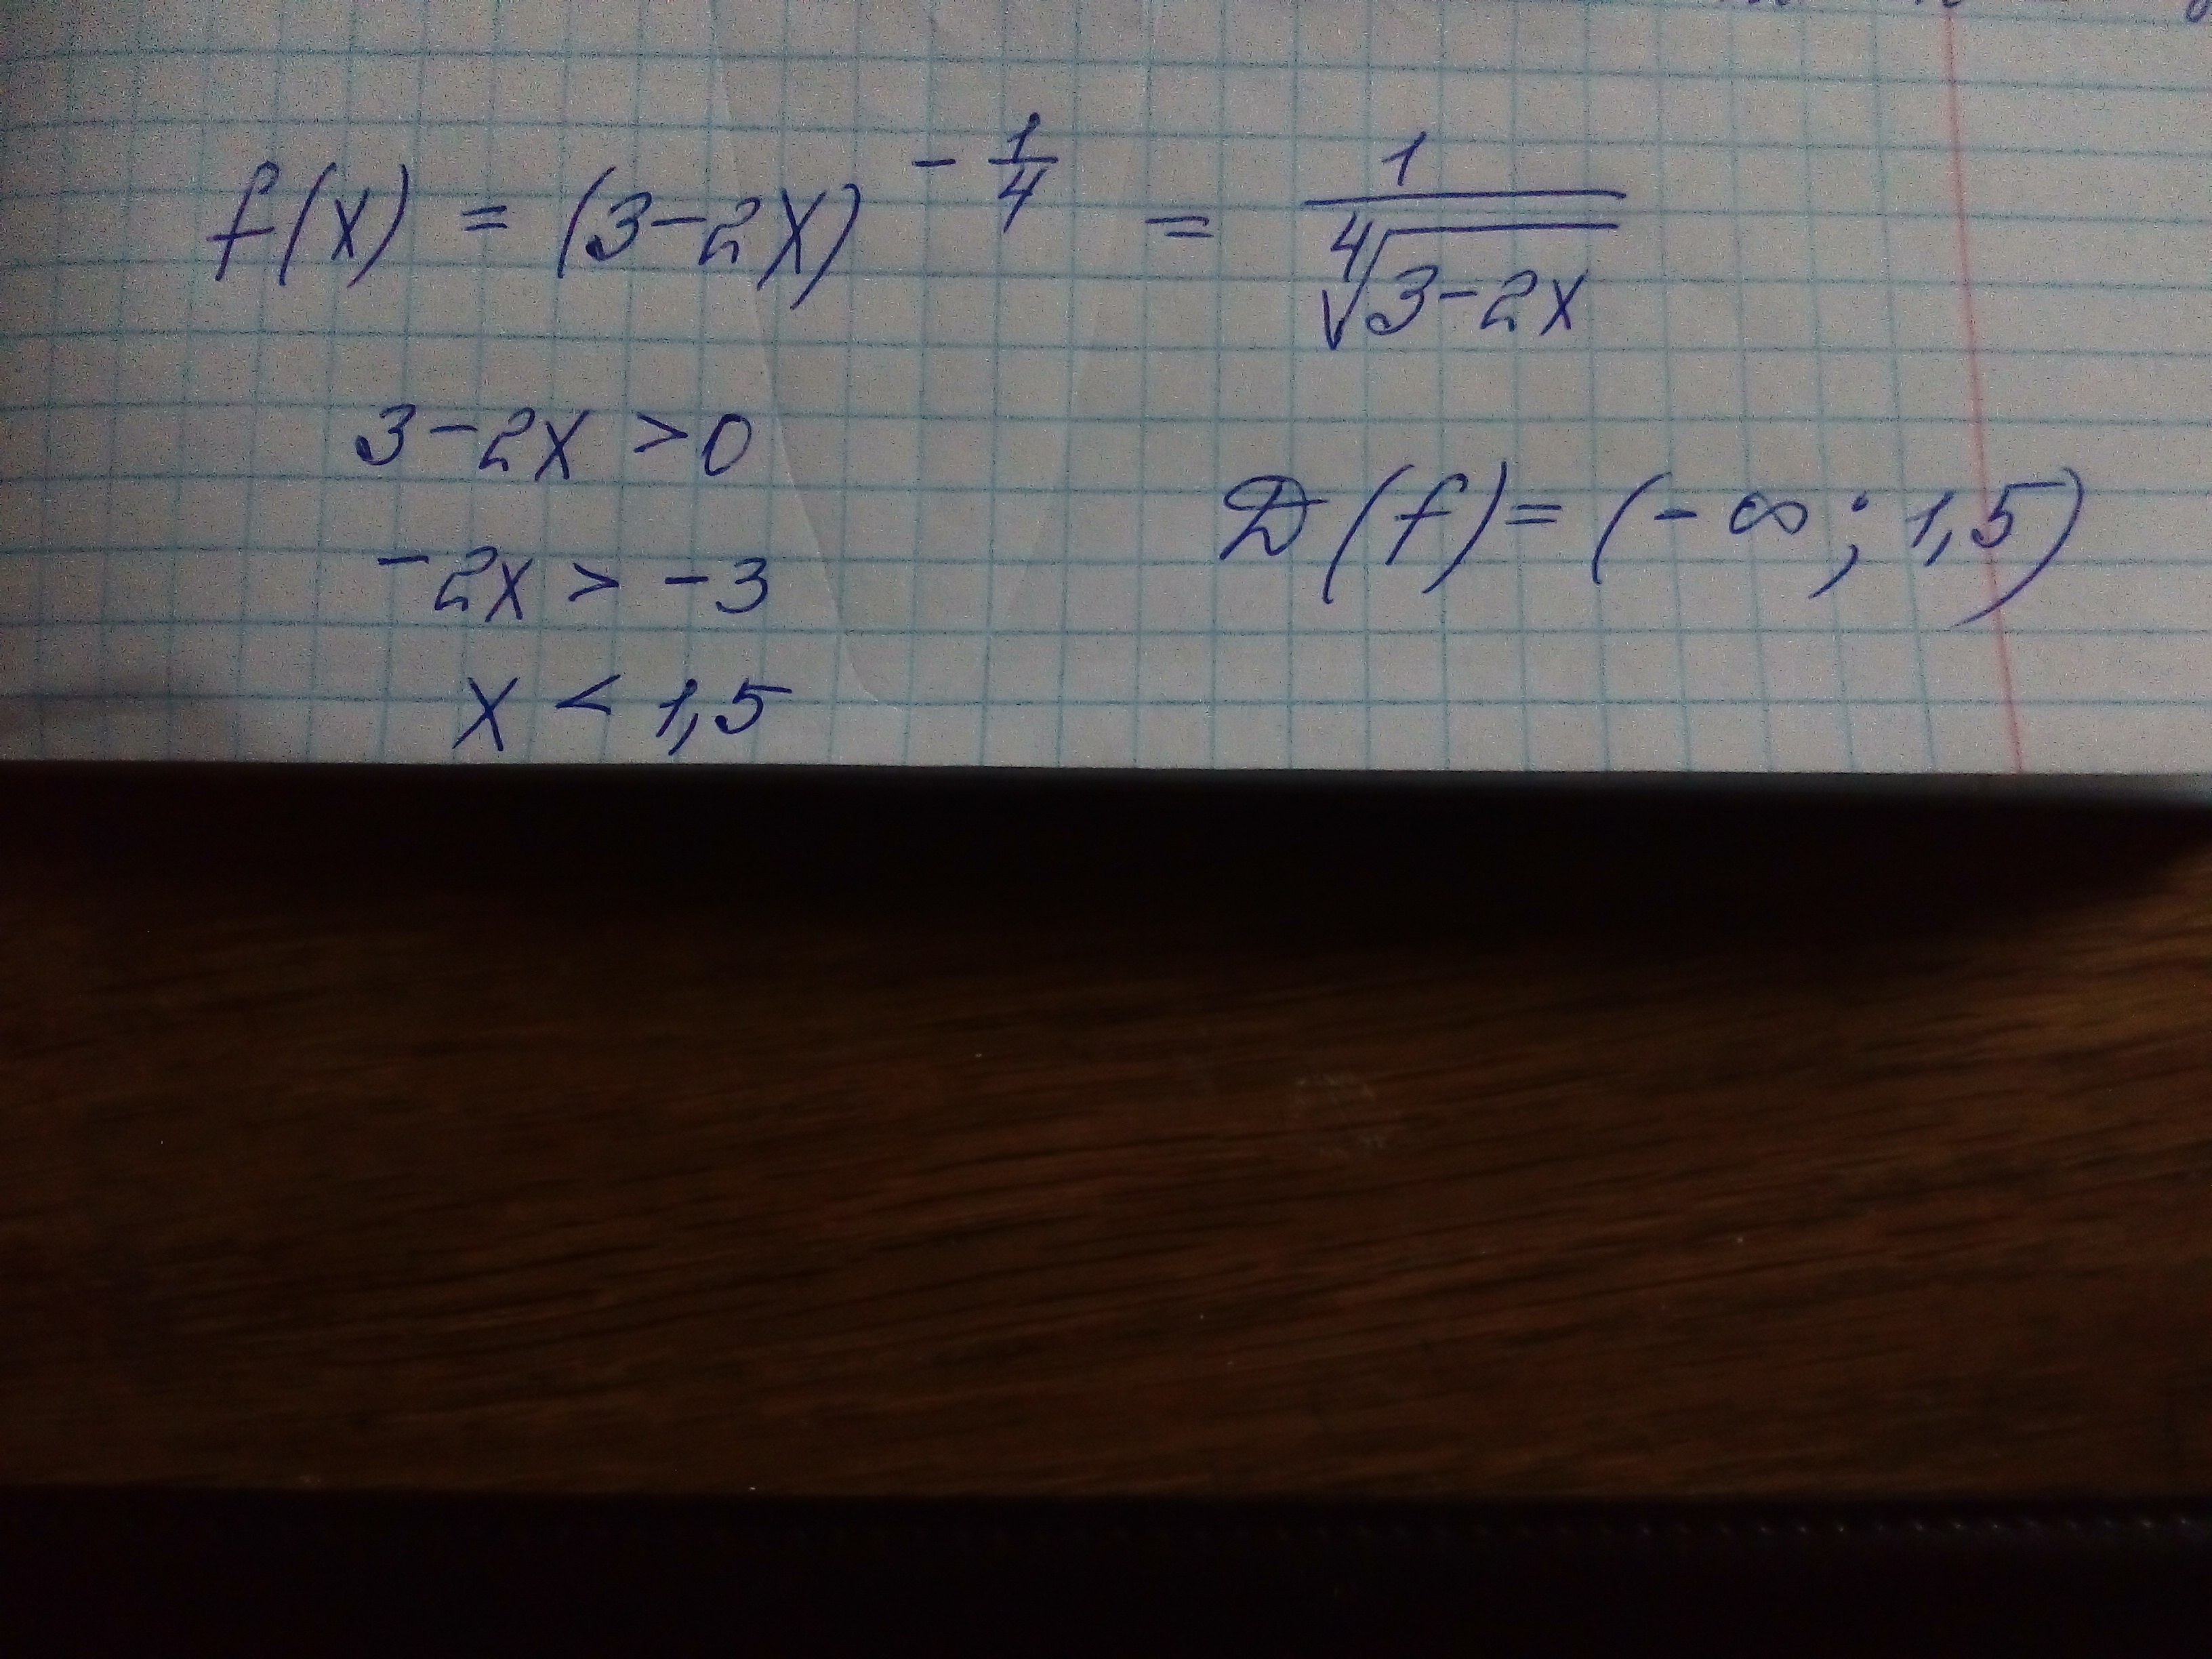 f(x) = (3-2x)^{-\frac{1}{4}} = \frac{1}{\sqrt[4]{3-2x}}
3-2x >0
D(f)= (-∞; 1,5)
-2x > -3
x < 1,5